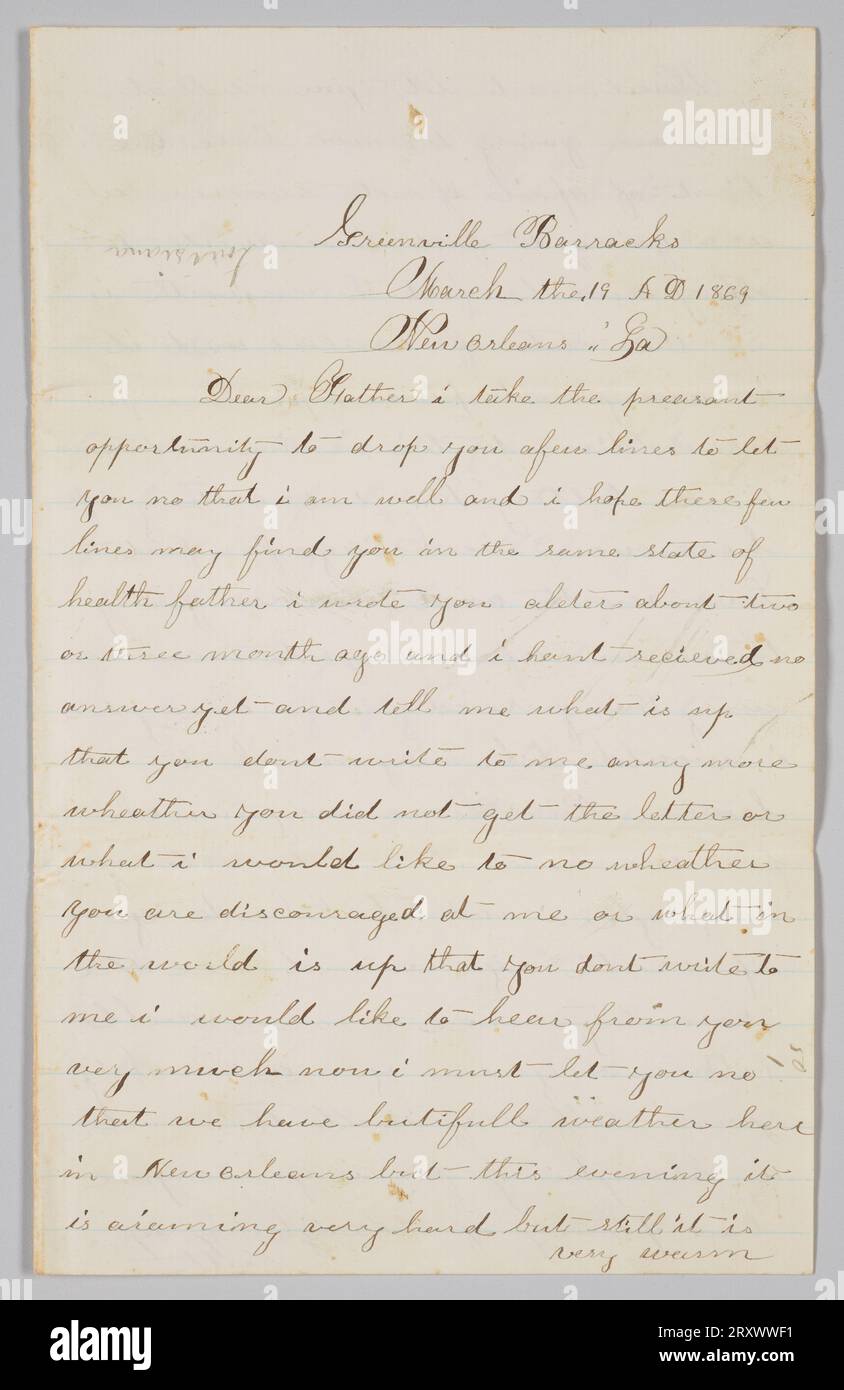 Greenville Barracks
Louisiana
March the, 19 A D 1869
New Orleans " La
Dear Father i take the preasant
opportunity to drop you afew lines to let
you no that i am well and i hope these few
lines may find you in the same state of
health father i wrote you aleter about two
or three month ago and i hant recieved no
answer yet and tell me what is up
that you dont write to me anny more
wheather you did not get the letter or
what i would like to no wheather
you are discouraged at me or what in
the world is up that you dont write to
me i would like to hear from you
very much now i must let you no
that we have butifull weather here
in New Orleans but this evening it
is araining very hard but still it is
very warm
alamy
alamy
Image ID: 2RXWWF1
www.alamy.com